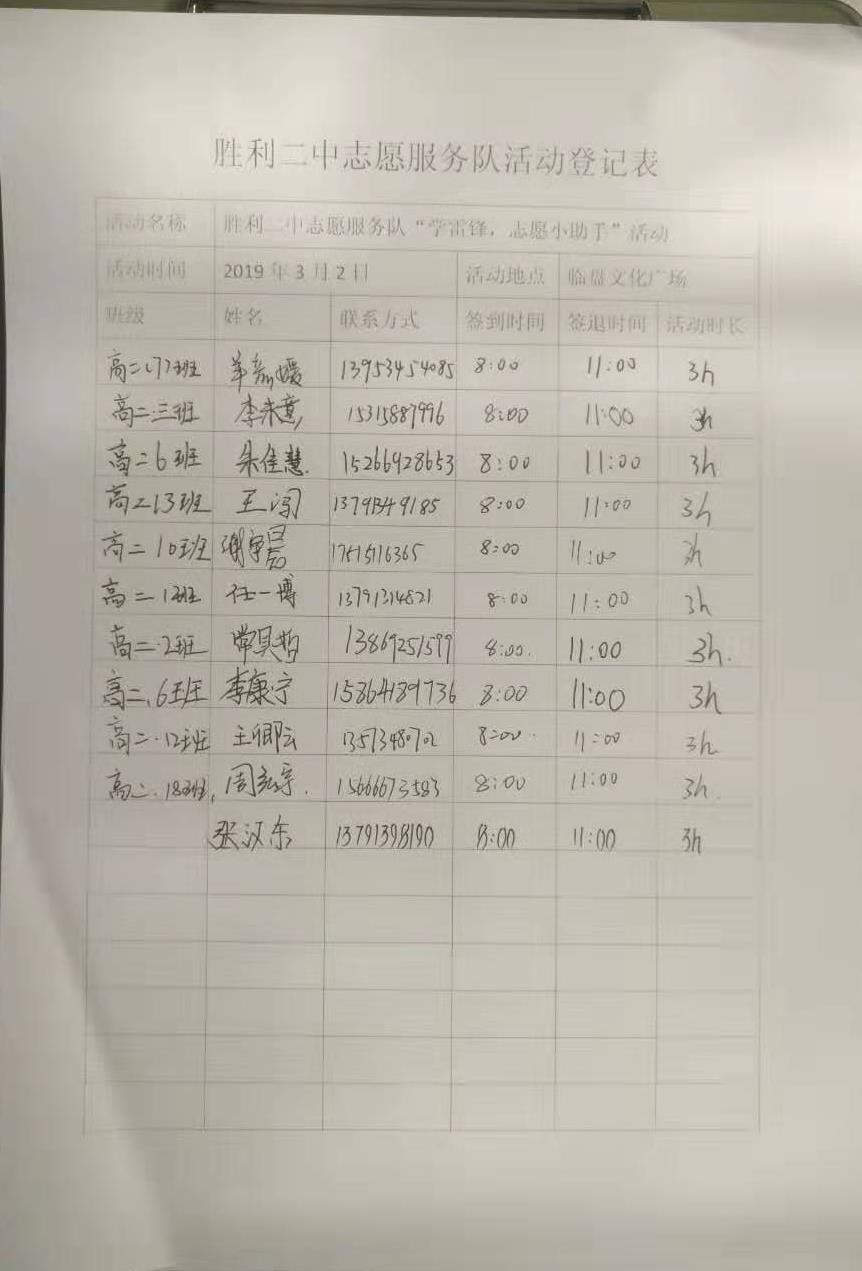 胜利二中志愿服务队活动登记表
活动名称 胜利二中志愿服务队“学雷锋，志愿小助手”活动
活动时间 2019 年 3 月 2 日 活动地点 临盘文化广场
班级 姓名 联系方式 签到时间 签退时间 活动时长
高二.17班 13953454085 8:00 11:00 3h
高二.三班 15315887996 8:00 11:00 3h
高二6班 朱佳慧. 15266928653 8:00 11:00 3h
高二13班 王闯 8:00 11:00 3h
高二10班 17515116365 8:00 11:00 3h
高二 任一博 13791314821 8:00 11:00 3h
高二.2班 常昊哲 13869251599 8:00. 11:00 3h.
高二.6班 李康宁 15864189736 8:00 11:00 3h
高二.12班 王卿云 8:00 11:00 3h
高二.18班. 15666673583 8:00 11:00 3h.
张汉东 13791398190 8:00 11:00 3h